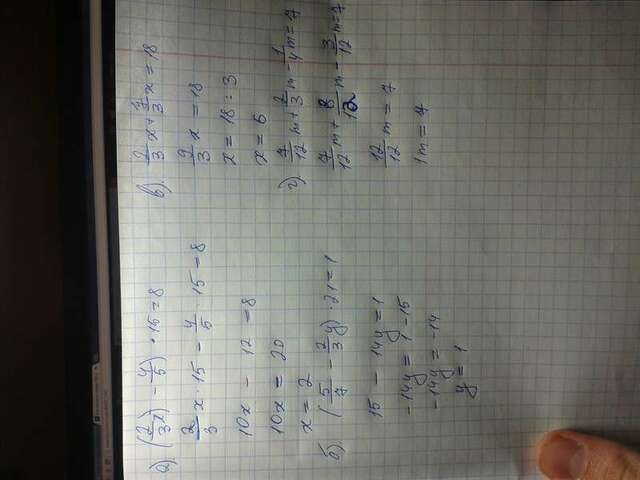 а) (2/3x) - 4/5) · 15 = 8
2/3 x · 15 - 4/5 · 15 = 8
10x - 12 = 8
10x = 20
x = 2
б). (5/7 - 2/3y) · 21 = 1
15 - 14y = 1
-14y = 1 - 15
-14y = -14
y = 1
в). 2/3 x + 7/3 x = 18
9/3 x = 18
x = 18 : 3
x = 6
г) 7/12 m + 2/3 m - 1/4 m = 7
7/12 m + 8/12 m - 3/12 m = 7
12/12 m = 7
1m = 7